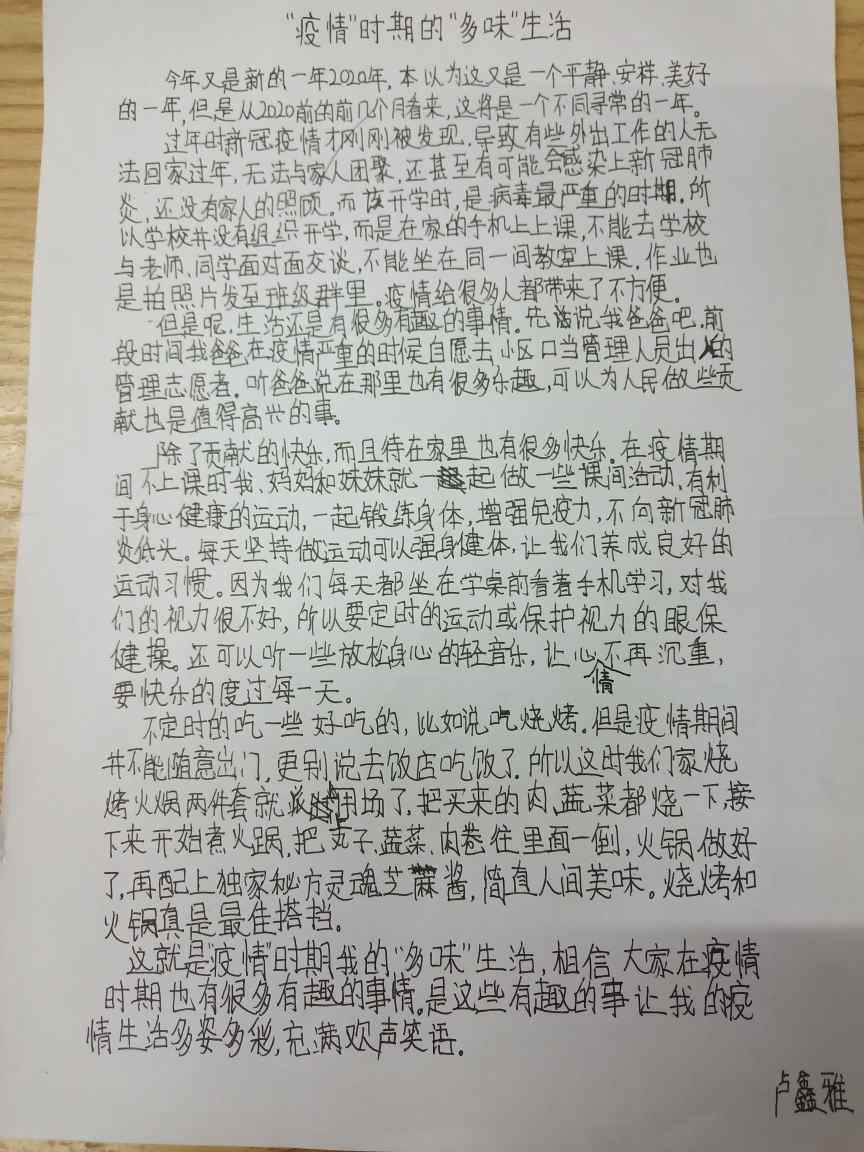 “疫情”时期的“多味”生活
今年又是新的一年2020年,本以为这又是一个平静、安祥、美好
的一年,但是从2020前的前几个月看来,这将是一个不同寻常的一年。
过年时新冠疫情才刚刚被发现,导致有些外出工作的人无
法回家过年,无法与家人团聚,还甚至有可能会感染上新冠肺
炎,还没有家人的照顾。而该开学时,是病毒最严重的时期。所
以学校并没有组织开学,而是在家的手机上上课,不能去学校
与老师、同学面对面交谈,不能坐在同一间教室上课。作业也
是拍照片发至班级群里。疫情给很多人都带来了不方便。
但是呢,生活还是有很多有趣的事情。先说说我爸爸吧,前
段时间我爸爸在疫情严重的时候自愿去小区口当管理人员出入的
管理志愿者。听爸爸说在那里也有很多乐趣,可以为人民做些贡
献也是值得高兴的事。
除了贡献的快乐,而且待在家里也有很多快乐。在疫情期
间不上课时我、妈妈和妹妹就一起做一些课间活动,有利
于身心健康的运动,一起锻炼身体,增强免疫力,不向新冠肺
炎低头。每天坚持做运动可以强身健体,让我们养成良好的
运动习惯。因为我们每天都坐在学桌前看着手机学习,对我
们的视力很不好,所以要定时的运动或保护视力的眼保
健操。还可以听一些放松身心的轻音乐,让心情不再沉重,
要快乐的度过每一天。
不定时的吃一些好吃的,比如说吃烧烤。但是疫情期间
并不能随意出门,更别说去饭店吃饭了。所以这时我们家烧
烤火锅两件套就派上用场了,把买来的肉、蔬菜都烧一下,接
下来开始煮火锅,把丸子、蔬菜、肉卷往里面一倒,火锅做好
了,再配上独家秘方灵魂芝麻酱,简直人间美味。烧烤和
火锅真是最佳搭档。
这就是“疫情”时期我的“多味”生活,相信大家在疫情
时期也有很多有趣的事情。是这些有趣的事让我的疫
情生活多姿多彩,充满欢声笑语。
卢鑫雅